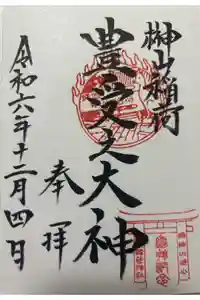 榊山稲荷
豊受之大神
奉拝
令和六年十二月四日